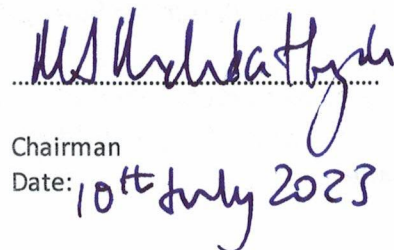 Chairman
Date: 10th July 2023